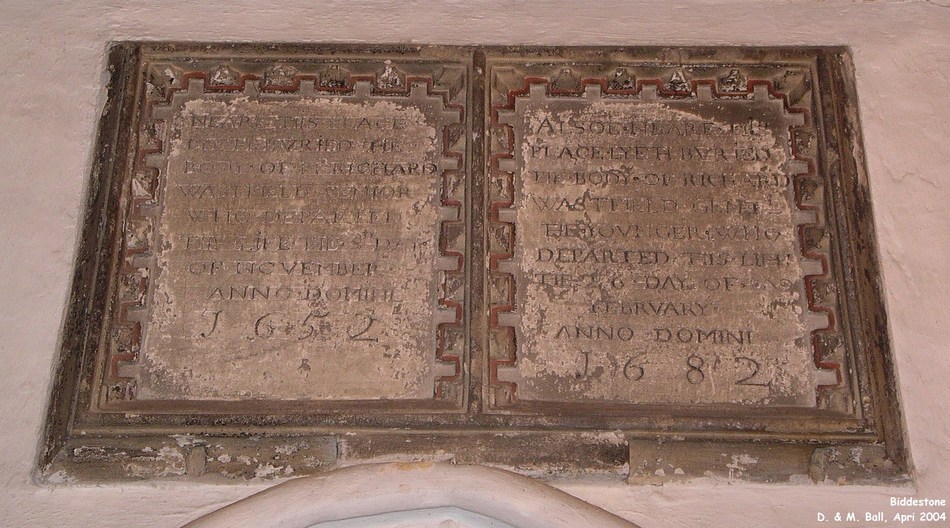 NEARE THIS PLACE
LYETH BVRIED THE
BODY OF RICHARD
WASTFIELD SENIOR
WHO DEPARTED
THIS LIFE THE DAY
OF NOVEMBER
ANNO DOMINI
1652
ALSOE NEARE THIS
PLACE LYETH BVRIED
THE BODY OF RICHARD
WASTFIELD GENT
THE YOVNGER WHO
DEPARTED THIS LIFE
THE 26 DAY OF
FEBRVARY
ANNO DOMINI
1682
Biddestone
D. & M. Ball, Apri 2004